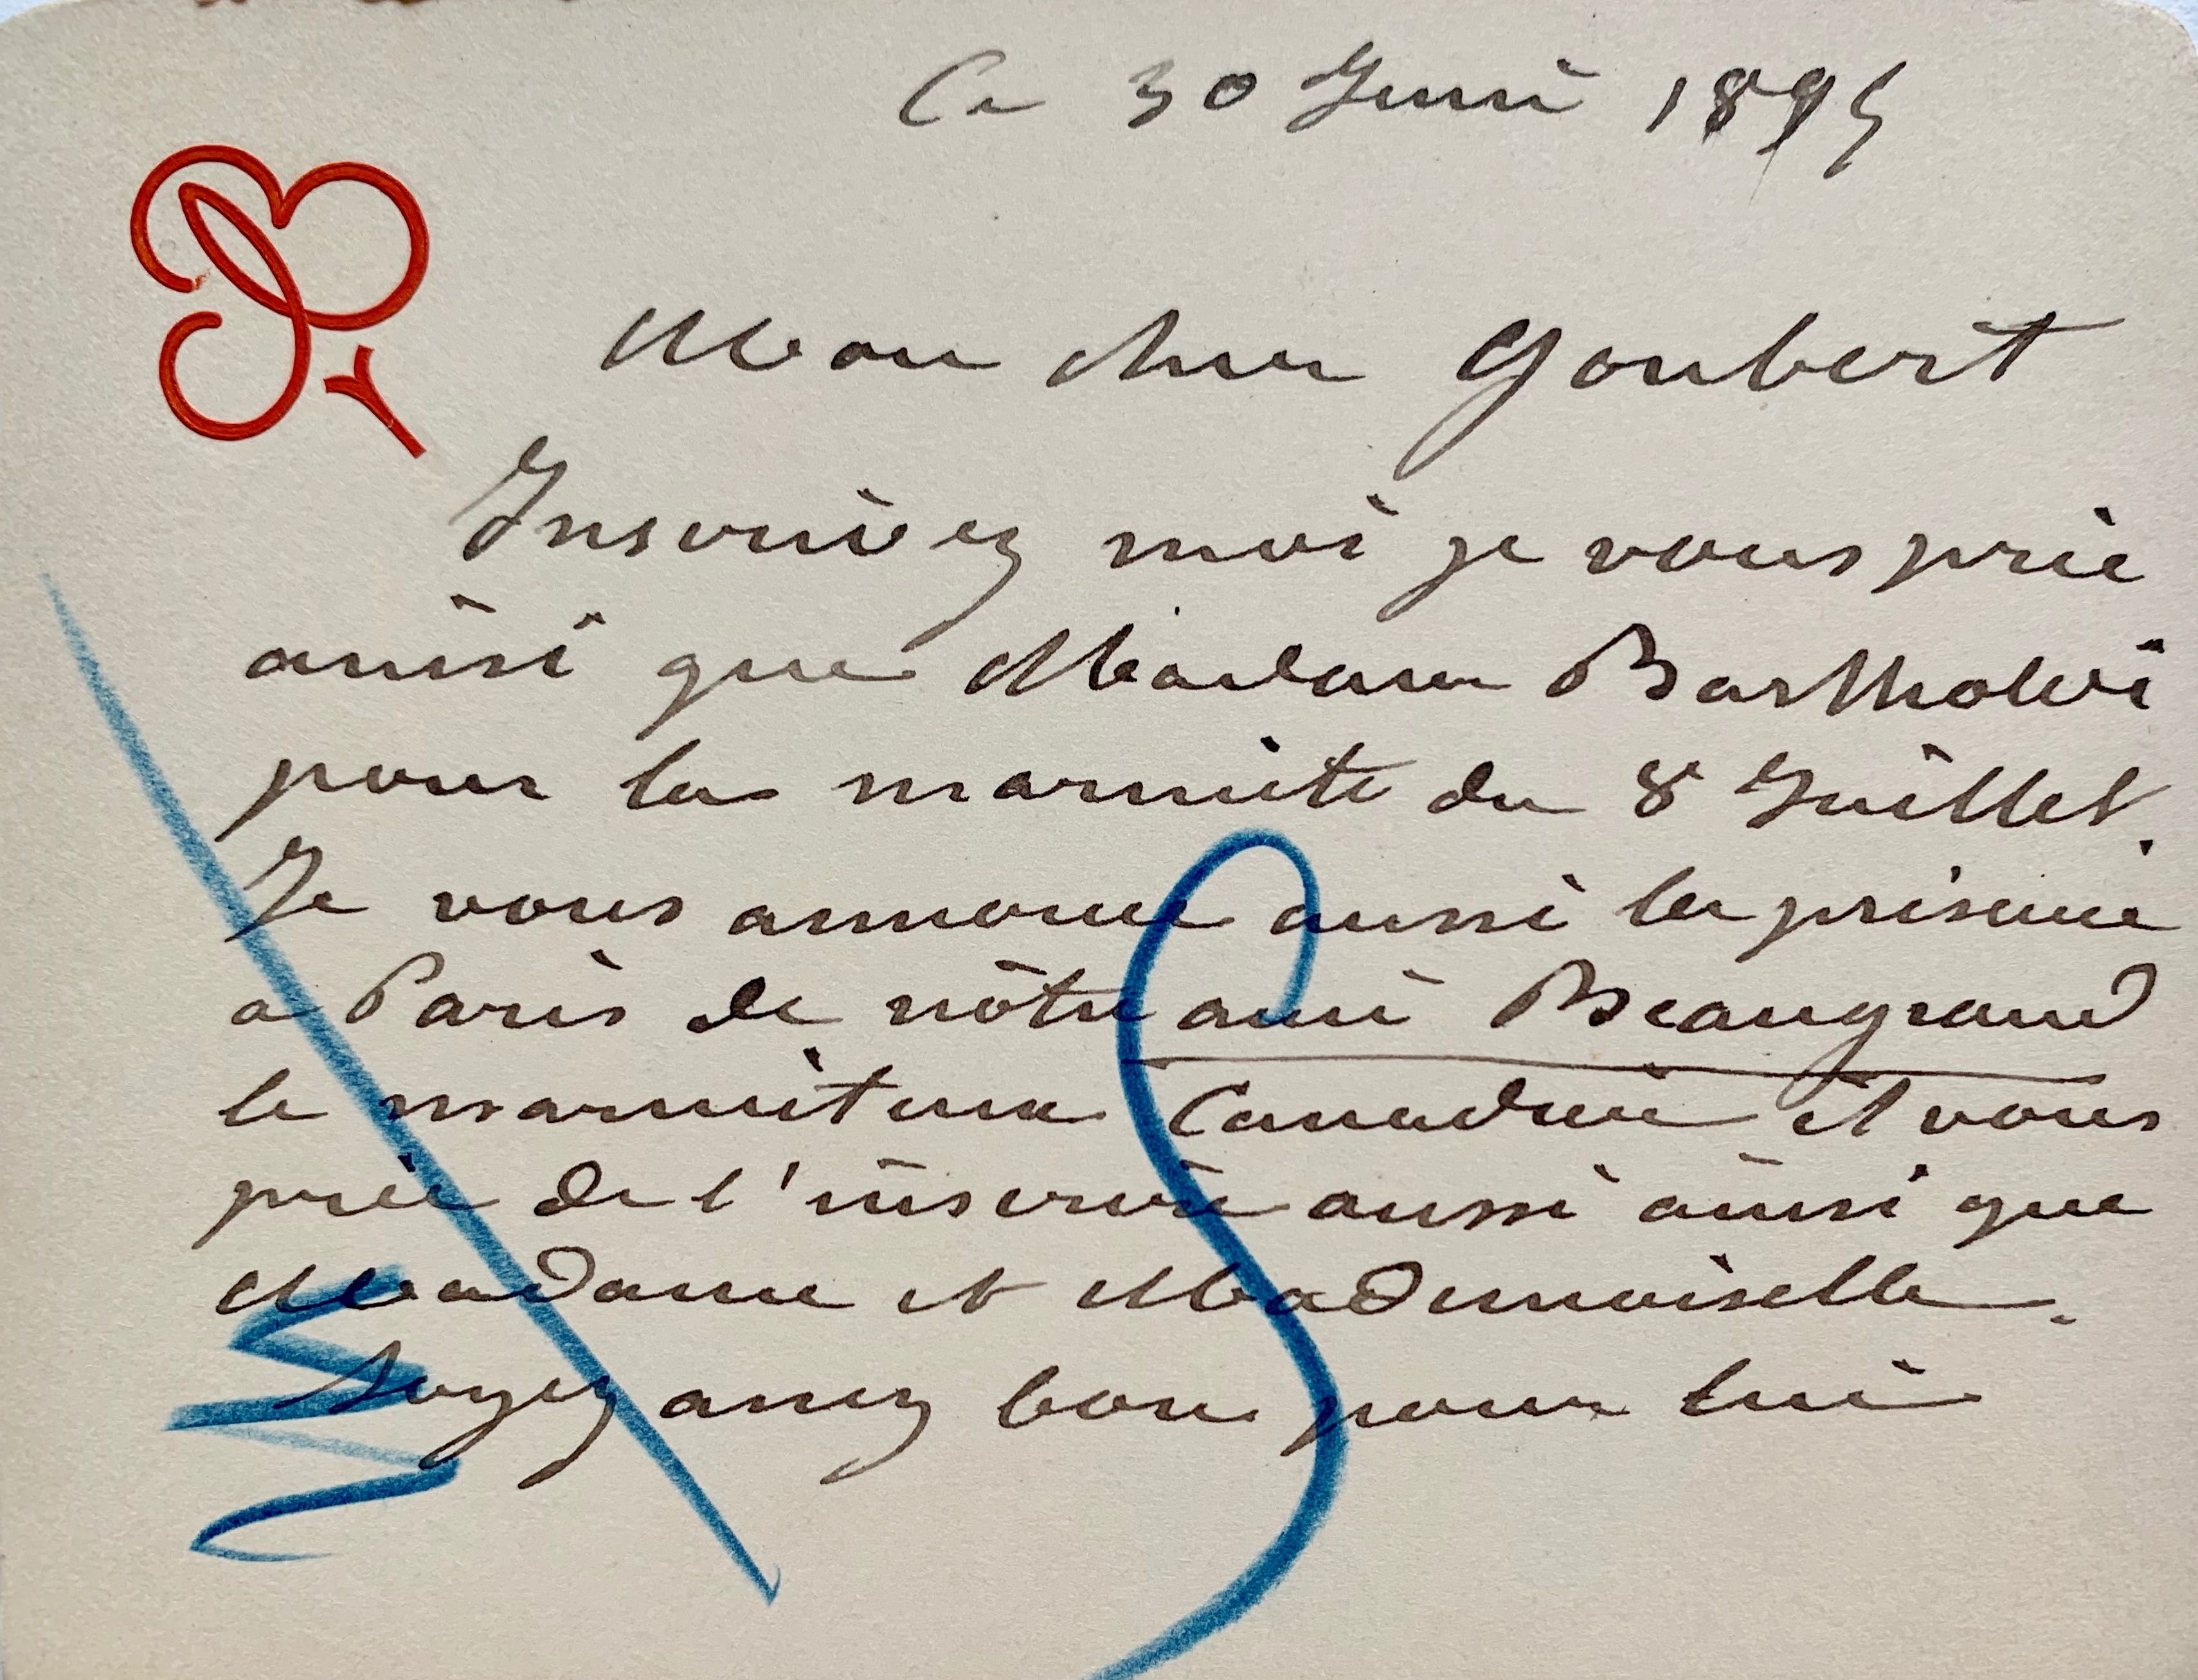 Ce 30 Juin 1895
Mon cher Goubert
Inscrivez moi je vous prie
ainsi que Madame Bartholdi
pour la marmite du 8 Juillet.
Je vous annonce aussi la présence
a Paris de nôtre ami Beaugrand
le marmiteux Canadien et vous
prie de l'inscrire aussi ainsi que
Madame et Mademoiselle.
Soyez assez bon pour lui